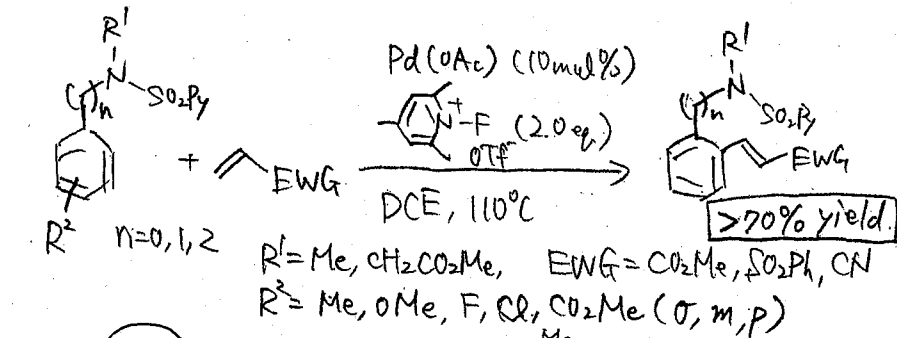 R' N SO2Py ( )n R2 n=0,1,2
+ EWG
Pd(OAc) (10mol%)
N+-F (2.0eq.)
OTf-
DCE, 110°C
R' N SO2Py ( )n EWG
>70% yield.
R'=Me, CH2CO2Me, EWG=CO2Me, SO2Ph, CN
R2=Me, OMe, F, Cl, CO2Me (o, m, p)
Me